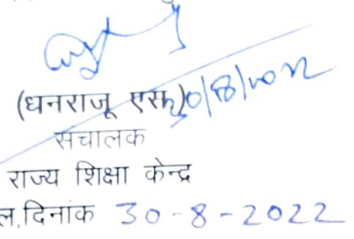 (धनराजू एस) 30/8/2022
संचालक
राज्य शिक्षा केन्द्र
ल,दिनांक 30-8-2022